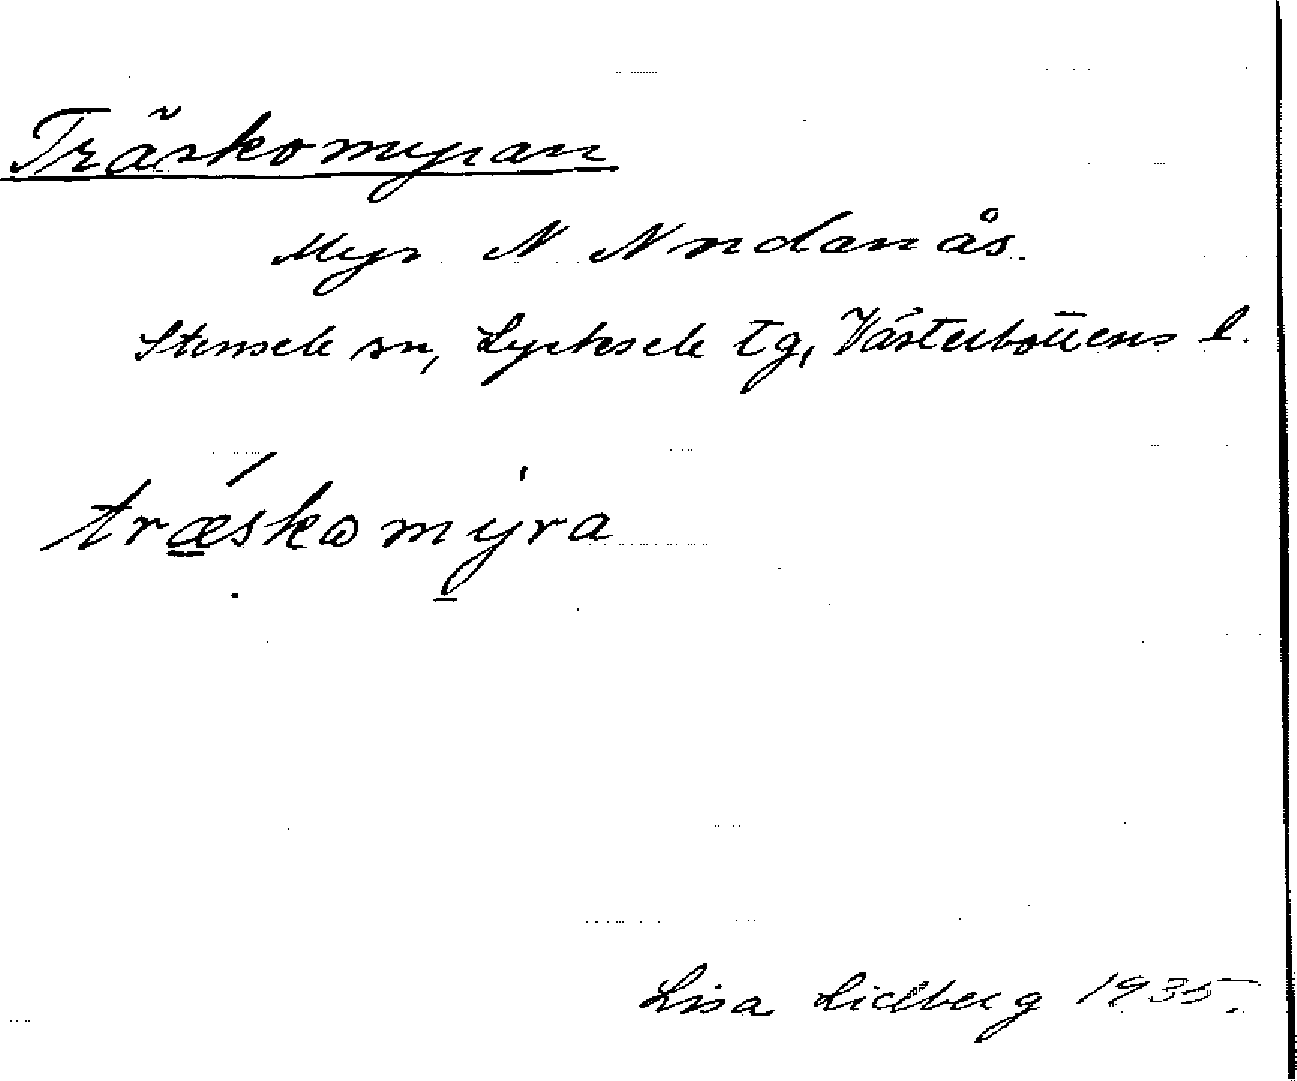 Träskomyran
Myr N Nordanås.
Stensele sn, Lycksele tg, Västerbottens l.
træskomyra
Lisa Lidberg 1935.